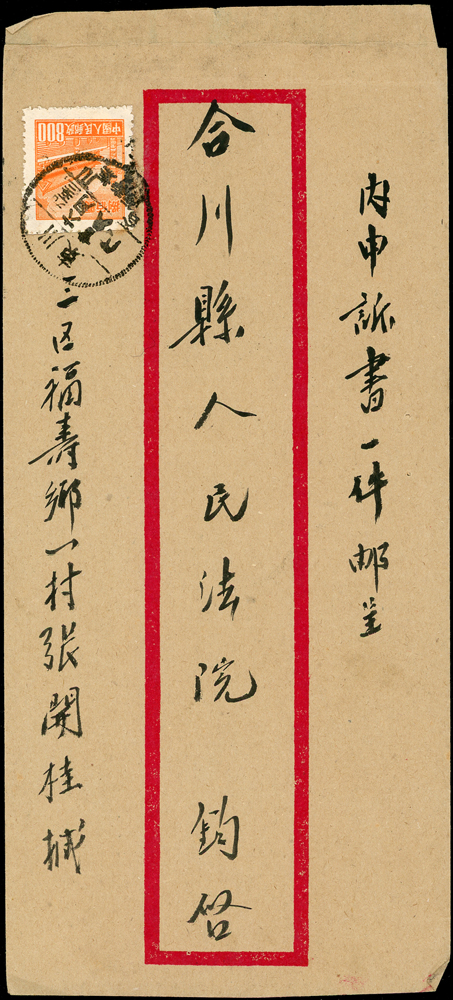 内申訴書一件邮呈
合川縣人民法院 鈞啓
三区福壽鄉一村張開桂緘
中國人民郵政
800